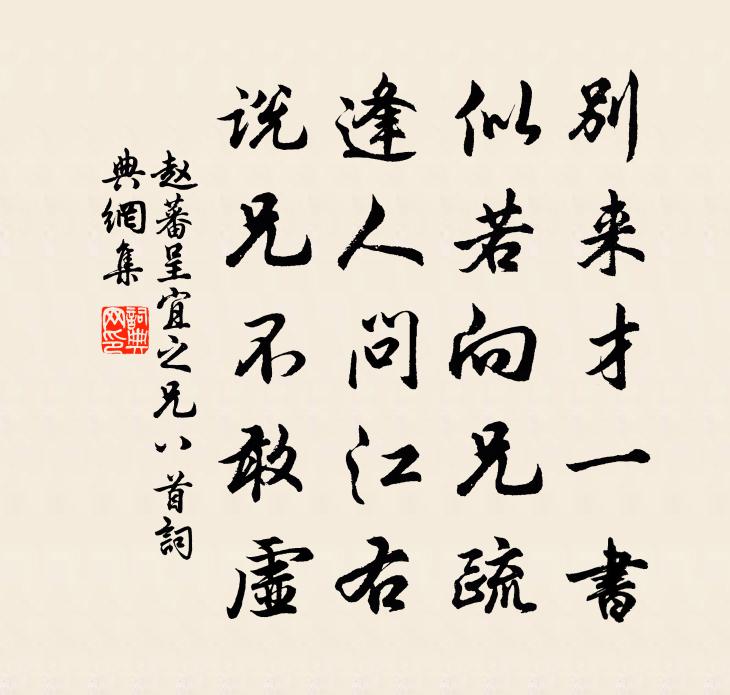 别来才一書
似若向兄疏
逢人问江右
说兄不敢虛
赵蕃呈宜之兄八首詞
典網集
詞典
网印